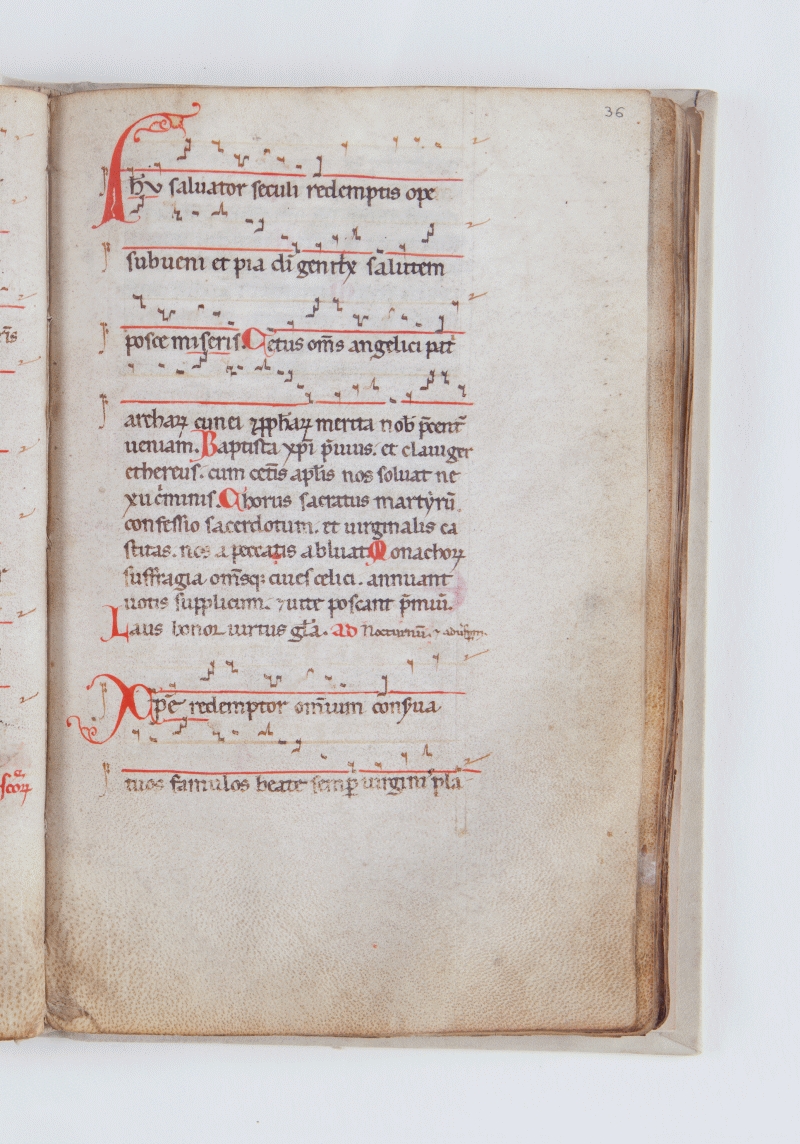 36
Ihu saluator seculi redemptis ope
subueni et pia di genitx salutem
posce miseris. Cetus oms angelici pat
archaꝝ cunei ꝓphaꝝ merita nob p̄cent
ueniam. Baptista xp̄i p̄uius. et clauiger
ethereus. cum cet̄is aplis nos soluat ne
xu c̄minis. Chorus sacratus martyrū.
confessio sacerdotum. et uirginalis ca
stitas. nos a peccatis abluat. Monachoꝝ
suffragia omīsq; ciues celici. annuant
uotis supplicum. ⁊ uite poscant p̄miū.
Laus honor uirtus gl̄a. ad Nocturnū.
Xpē redemptor om̄ium conserua
tuos famulos beate semp̄ uirginis pla